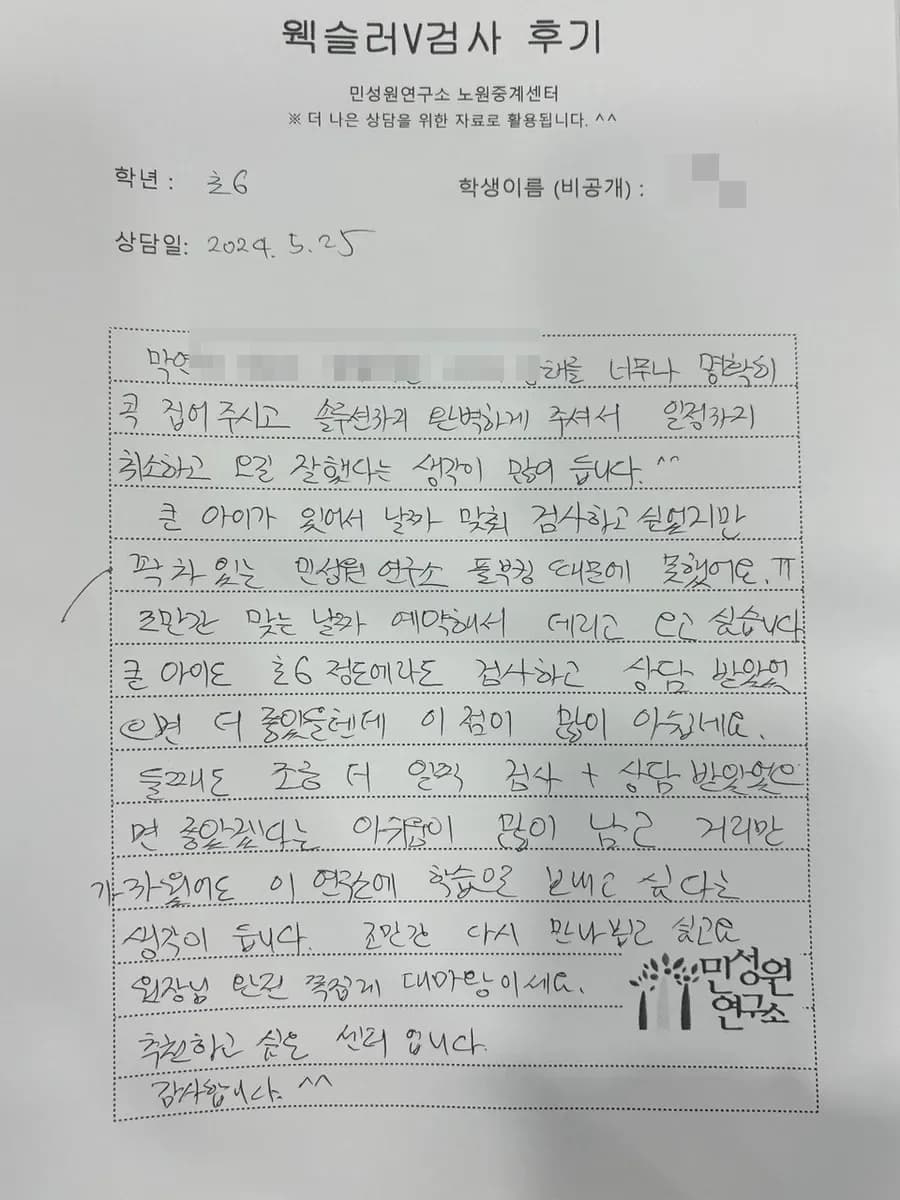 웩슬러V검사 후기
민성원연구소 노원중계센터
※ 더 나은 상담을 위한 자료로 활용됩니다. ^^
학년 : 초6
학생이름 (비공개) :
상담일: 2024. 5. 25
너무나 명확히
콕 집어 주시고 솔루션까지 완벽하게 주셔서 일정까지
취소하고 오길 잘했다는 생각이 많이 듭니다.^^
큰 아이가 있어서 날짜 맞춰 검사하고 싶었지만
꽉 차 있는 민성원 연구소 풀부킹 때문에 못했어요.ㅠ
조만간 맞는 날짜 예약해서 데리고 오고 싶습니다
큰 아이도 초6 정도에라도 검사하고 상담 받았었
으면 더 좋았을텐데 이 점이 많이 아쉽네요.
둘째도 조금 더 일찍 검사 + 상담 받았었으
면 좋았겠다는 아쉬움이 많이 남고 거리만
가까웠어도 이 연구소에 학습으로 보내고 싶다는
생각이 듭니다. 조만간 다시 만나뵙고 싶고요
원장님 완전 쪽집게 대마왕이세요.
추천하고 싶은 센터 입니다.
감사합니다. ^^
민성원
연구소